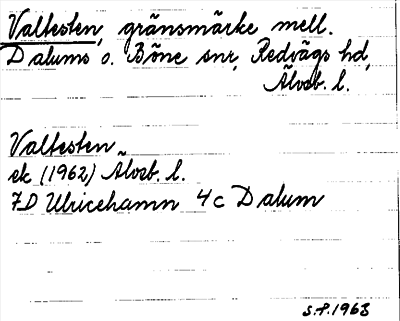 Valtesten, gränsmärke mell.
Dalums o. Böne snr, Redvägs hd,
Älvsb. l.
Valtesten
ek (1962) Älvsb. l.
7D Ulricehamn 4c Dalum
S.F. 1963